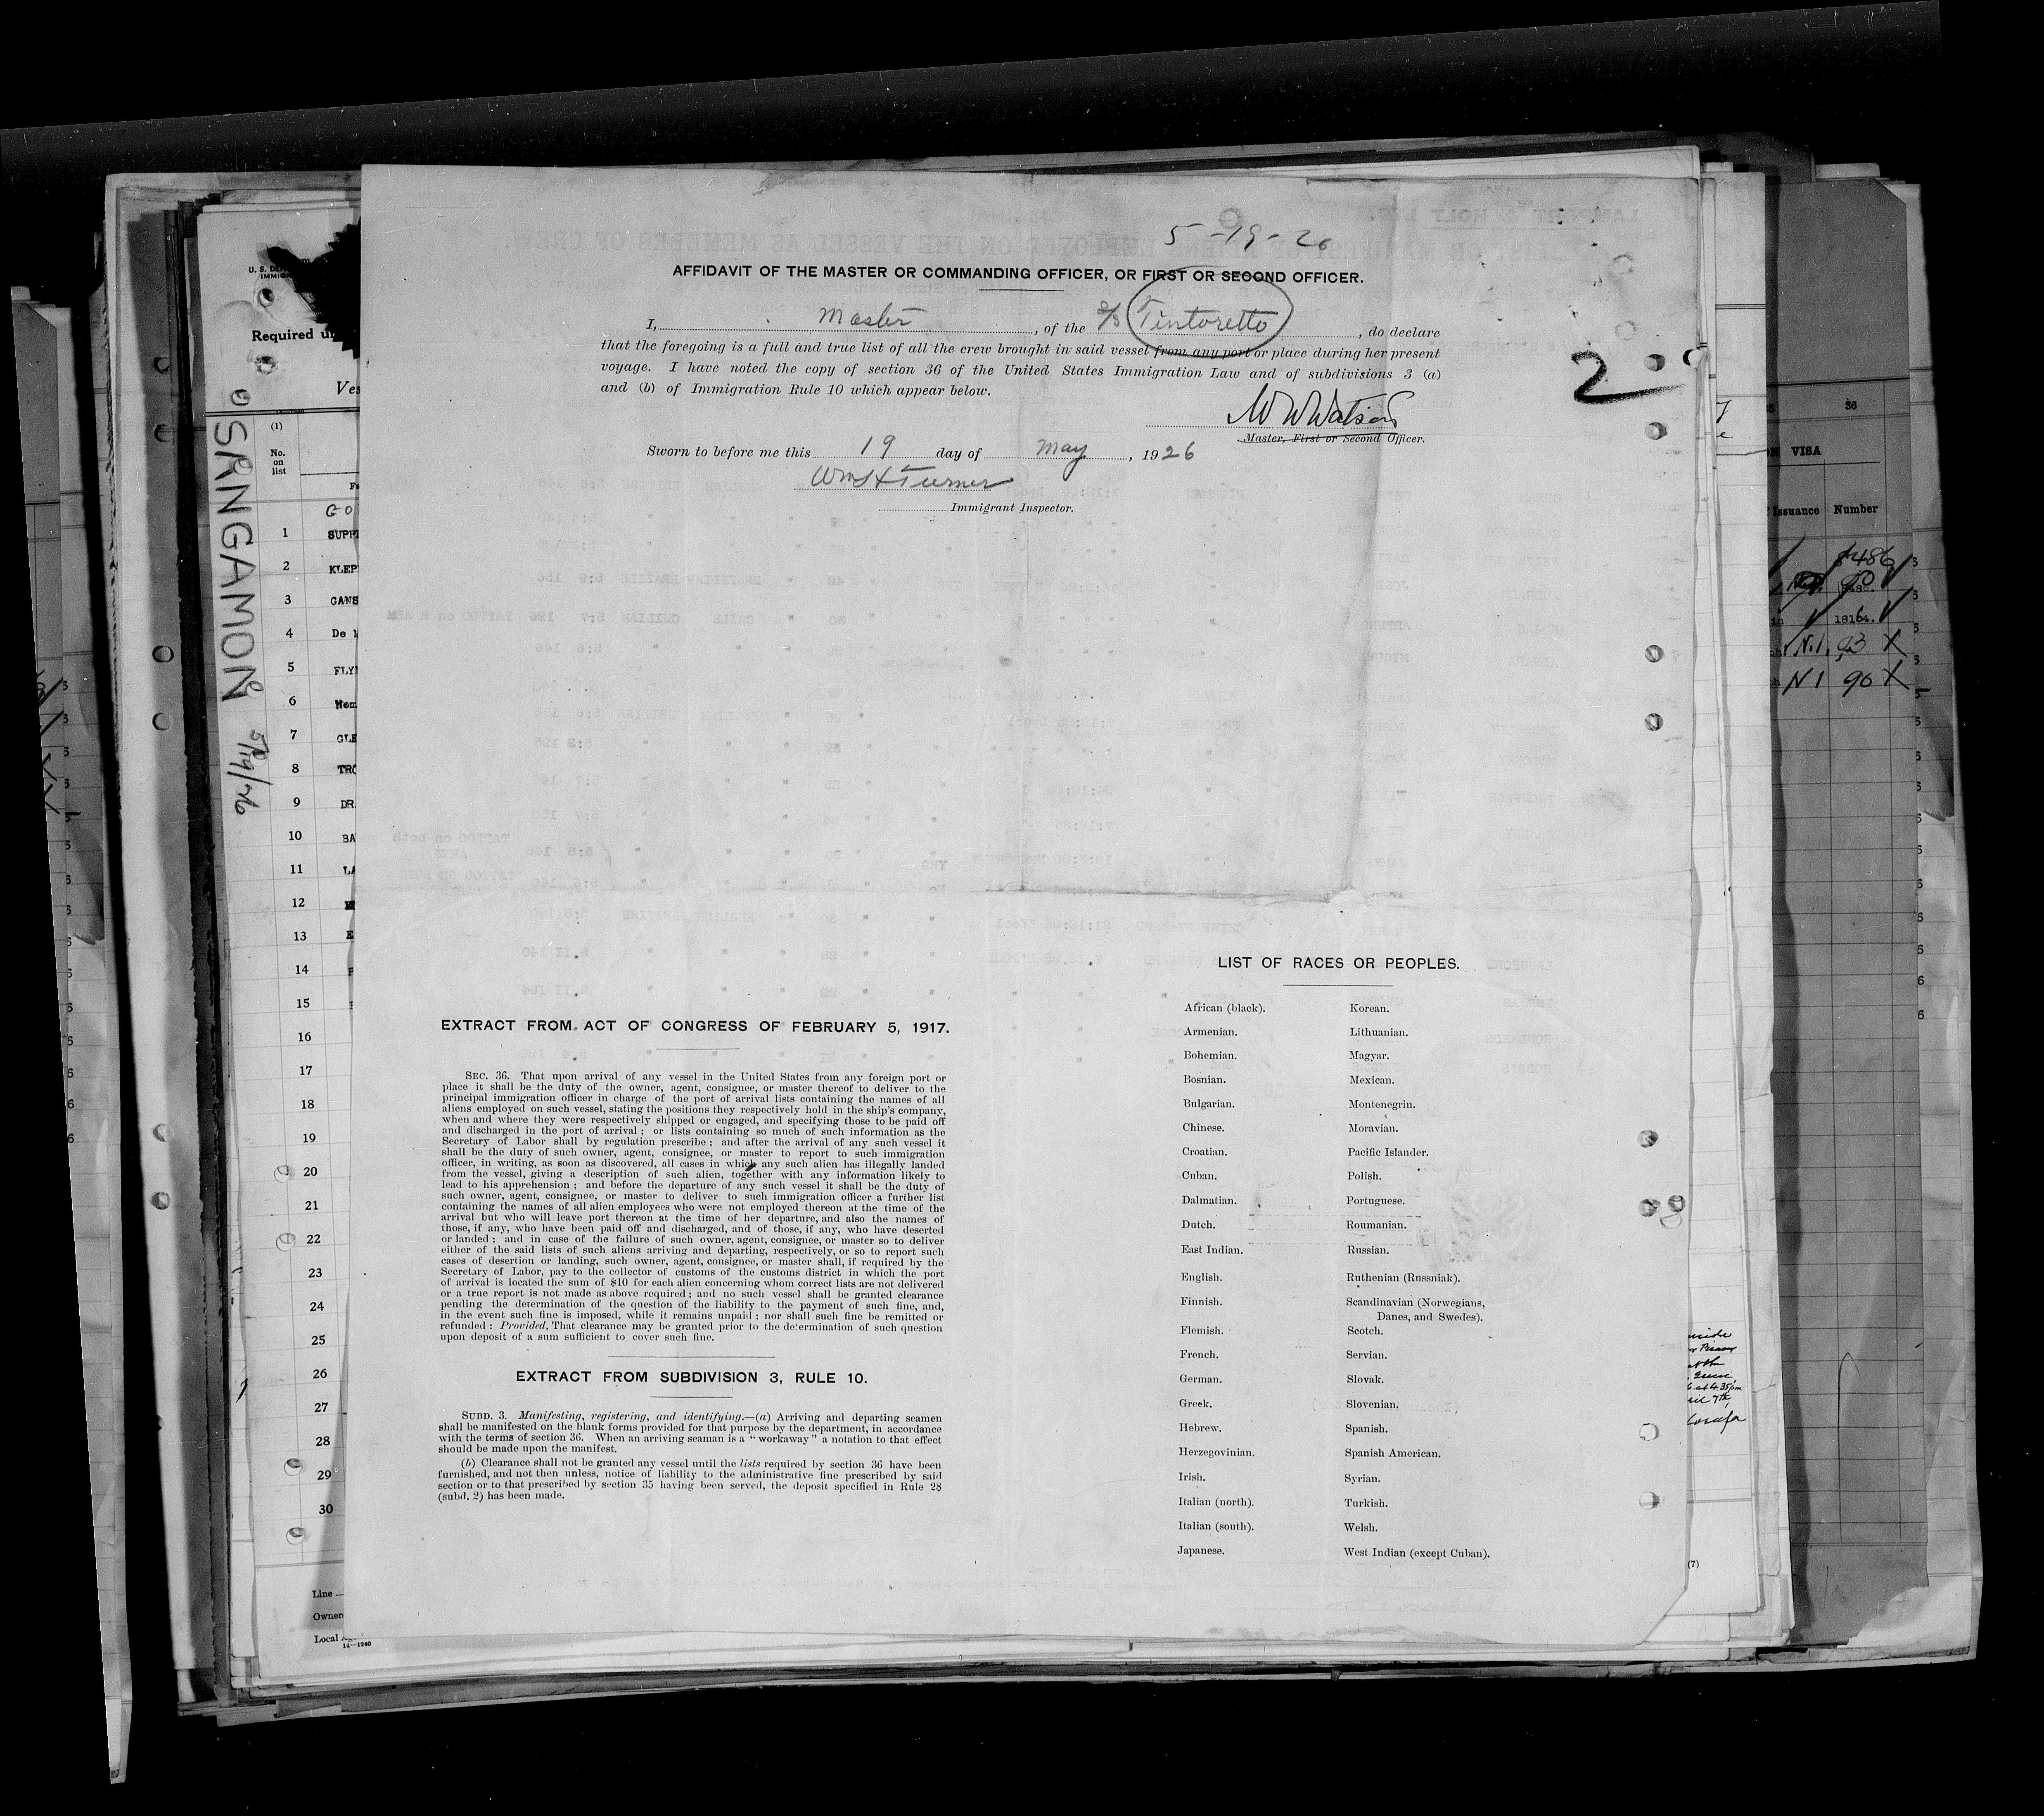 5-19-26
AFFIDAVIT OF THE MASTER OR COMMANDING OFFICER, OR FIRST OR SECOND OFFICER.
I, Master, of the S/S Tintoretto, do declare
that the foregoing is a full and true list of all the crew brought in said vessel from any port or place during her present
voyage. I have noted the copy of section 36 of the United States Immigration Law and of subdivisions 3 (a)
and (b) of Immigration Rule 10 which appear below.
2
W W Watson
Master, First or Second Officer.
Sworn to before me this 19 day of May, 1926
Wm H Turner
Immigrant Inspector.
EXTRACT FROM ACT OF CONGRESS OF FEBRUARY 5, 1917.
SEC. 36. That upon arrival of any vessel in the United States from any foreign port or
place it shall be the duty of the owner, agent, consignee, or master thereof to deliver to the
principal immigration officer in charge of the port of arrival lists containing the names of all
aliens employed on such vessel, stating the positions they respectively hold in the ship's company,
when and where they were respectively shipped or engaged, and specifying those to be paid off
and discharged in the port of arrival; or lists containing so much of such information as the
Secretary of Labor shall by regulation prescribe; and after the arrival of any such vessel it
shall be the duty of such owner, agent, consignee, or master to report to such immigration
officer, in writing, as soon as discovered, all cases in which any such alien has illegally landed
from the vessel, giving a description of such alien, together with any information likely to
lead to his apprehension; and before the departure of any such vessel it shall be the duty of
such owner, agent, consignee, or master to deliver to such immigration officer a further list
containing the names of all alien employees who were not employed thereon at the time of the
arrival but who will leave port thereon at the time of her departure, and also the names of
those, if any, who have been paid off and discharged, and of those, if any, who have deserted
or landed; and in case of the failure of such owner, agent, consignee, or master so to deliver
either of the said lists of such aliens arriving and departing, respectively, or so to report such
cases of desertion or landing, such owner, agent, consignee, or master shall, if required by the
Secretary of Labor, pay to the collector of customs of the customs district in which the port
of arrival is located the sum of $10 for each alien concerning whom correct lists are not delivered
or a true report is not made as above required; and no such vessel shall be granted clearance
pending the determination of the question of the liability to the payment of such fine, and,
in the event such fine is imposed, while it remains unpaid; nor shall such fine be remitted or
refunded: Provided, That clearance may be granted prior to the determination of such question
upon deposit of a sum sufficient to cover such fine.
EXTRACT FROM SUBDIVISION 3, RULE 10.
SUBD. 3. Manifesting, registering, and identifying.—(a) Arriving and departing seamen
shall be manifested on the blank forms provided for that purpose by the department, in accordance
with the terms of section 36. When an arriving seaman is a "workaway" a notation to that effect
should be made upon the manifest.
(b) Clearance shall not be granted any vessel until the lists required by section 36 have been
furnished, and not then unless, notice of liability to the administrative fine prescribed by said
section or to that prescribed by section 35 having been served, the deposit specified in Rule 28
(subd. 2) has been made.
LIST OF RACES OR PEOPLES.
African (black). Korean.
Armenian. Lithuanian.
Bohemian. Magyar.
Bosnian. Mexican.
Bulgarian. Montenegrin.
Chinese. Moravian.
Croatian. Pacific Islander.
Cuban. Polish.
Dalmatian. Portuguese.
Dutch. Roumanian.
East Indian. Russian.
English. Ruthenian (Russniak).
Finnish. Scandinavian (Norwegians,
Danes, and Swedes).
Flemish. Scotch.
French. Servian.
German. Slovak.
Greek. Slovenian.
Hebrew. Spanish.
Herzegovinian. Spanish American.
Irish. Syrian.
Italian (north). Turkish.
Italian (south). Welsh.
Japanese. West Indian (except Cuban).
Required
SRNGAMON 5/19/26
(1)
No.
on
list
1
2
3
4 De
5
6
7
8
9
10
11
12
13
14
15
16
17
18
19
20
21
22
23
24
25
26
27
28
29
30
Line
Local
14-1240
36
VISA
Issuance Number
8486
18164.
N.1. 93 X
N 1 90 X
(7)